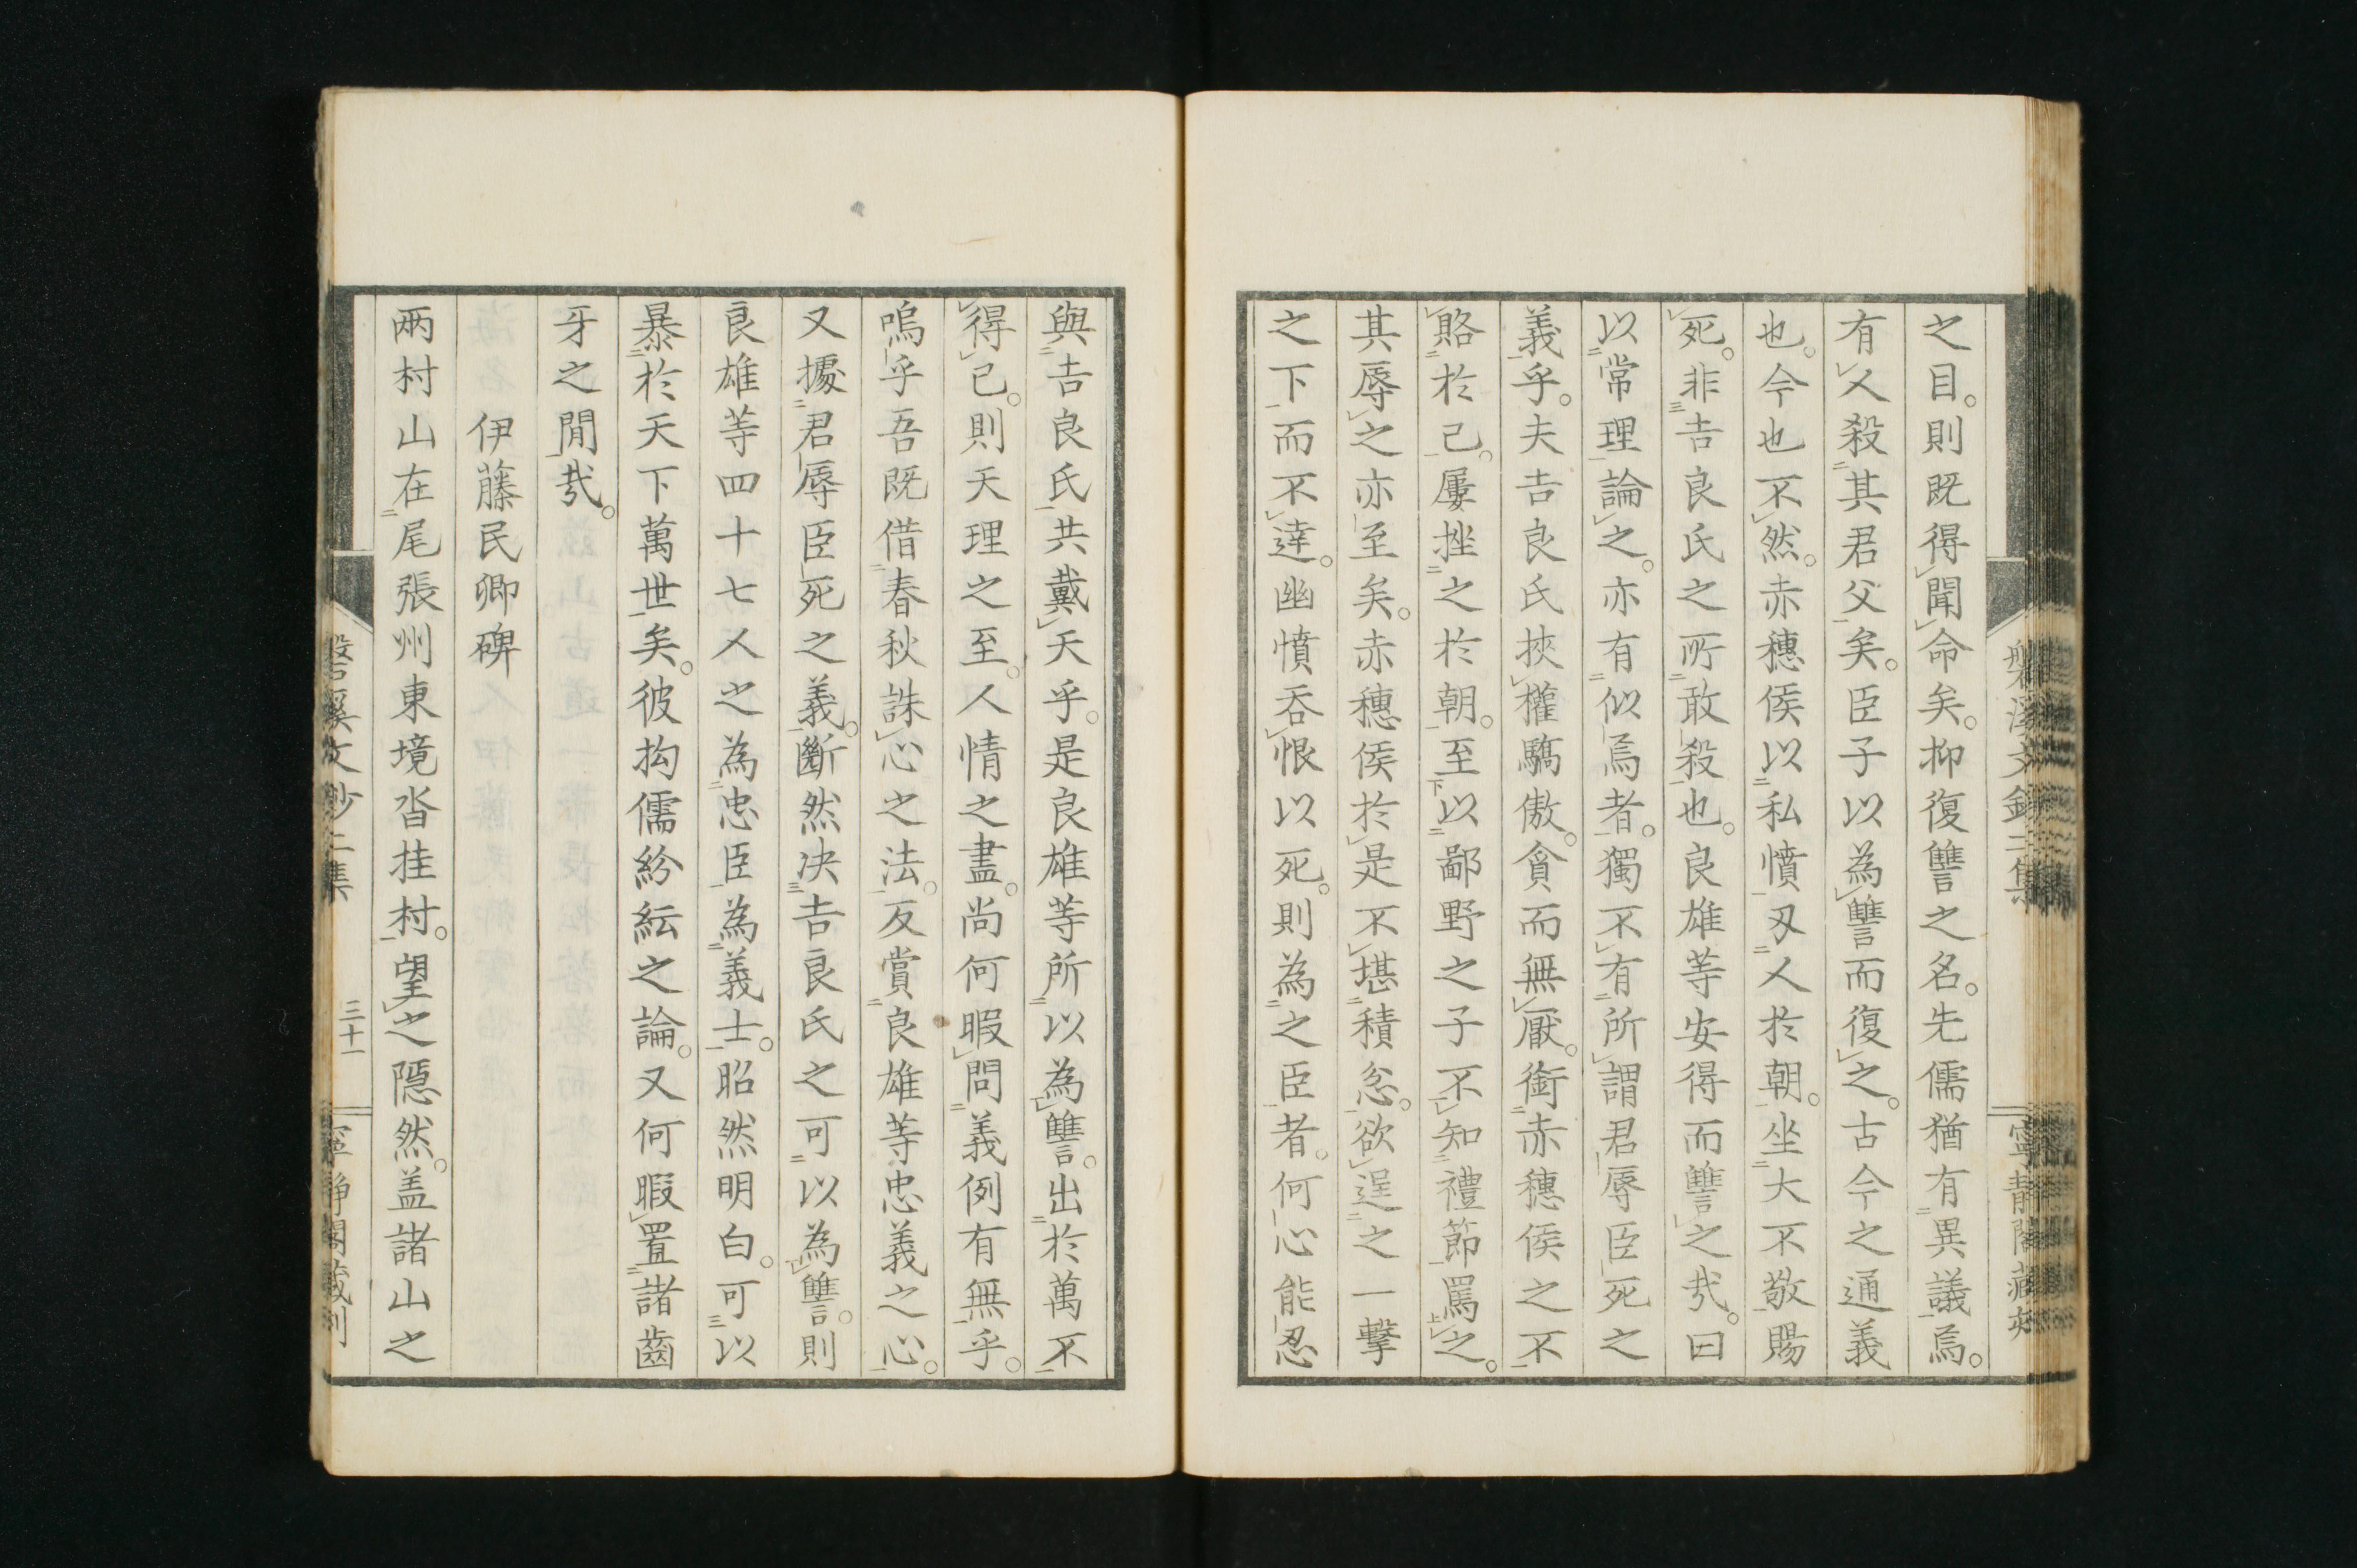 之目。則既得聞命矣。抑復讐之名。先儒猶有異議焉。
有人殺其君父矣。臣子以為讐而復之。古今之通義
也。今也不然。赤穗侯以私憤刃人於朝。坐大不敬賜
死。非吉良氏之所敢殺也。良雄等安得而讐之哉。曰
以常理論之。亦有似焉者。獨不有所謂君辱臣死之
義乎。夫吉良氏挾權驕傲。貪而無厭。銜赤穗侯之不
賂於己。屢挫之於朝。至以鄙野之子不知禮節罵之。
其辱之亦至矣。赤穗侯於是不堪積忿。欲逞之一擊
之下而不達。幽憤吞恨以死。則為之臣者。何心能忍
與吉良氏共戴天乎。是良雄等所以為讐。出於萬不
得已。則天理之至。人情之盡。尚何暇問義例有無乎。
嗚乎吾既借春秋誅心之法。反賞良雄等忠義之心。
又據君辱臣死之義。斷然决吉良氏之可以為讐。則
良雄等四十七人之為忠臣為義士。昭然明白。可以
暴於天下萬世矣。彼拘儒紛紜之論。又何暇置諸齒
牙之間哉。
伊藤民卿碑
兩村山在尾張州東境沓挂村。望之隱然。盖諸山之
磐溪文鈔二集
三十一
寧靜閣藏